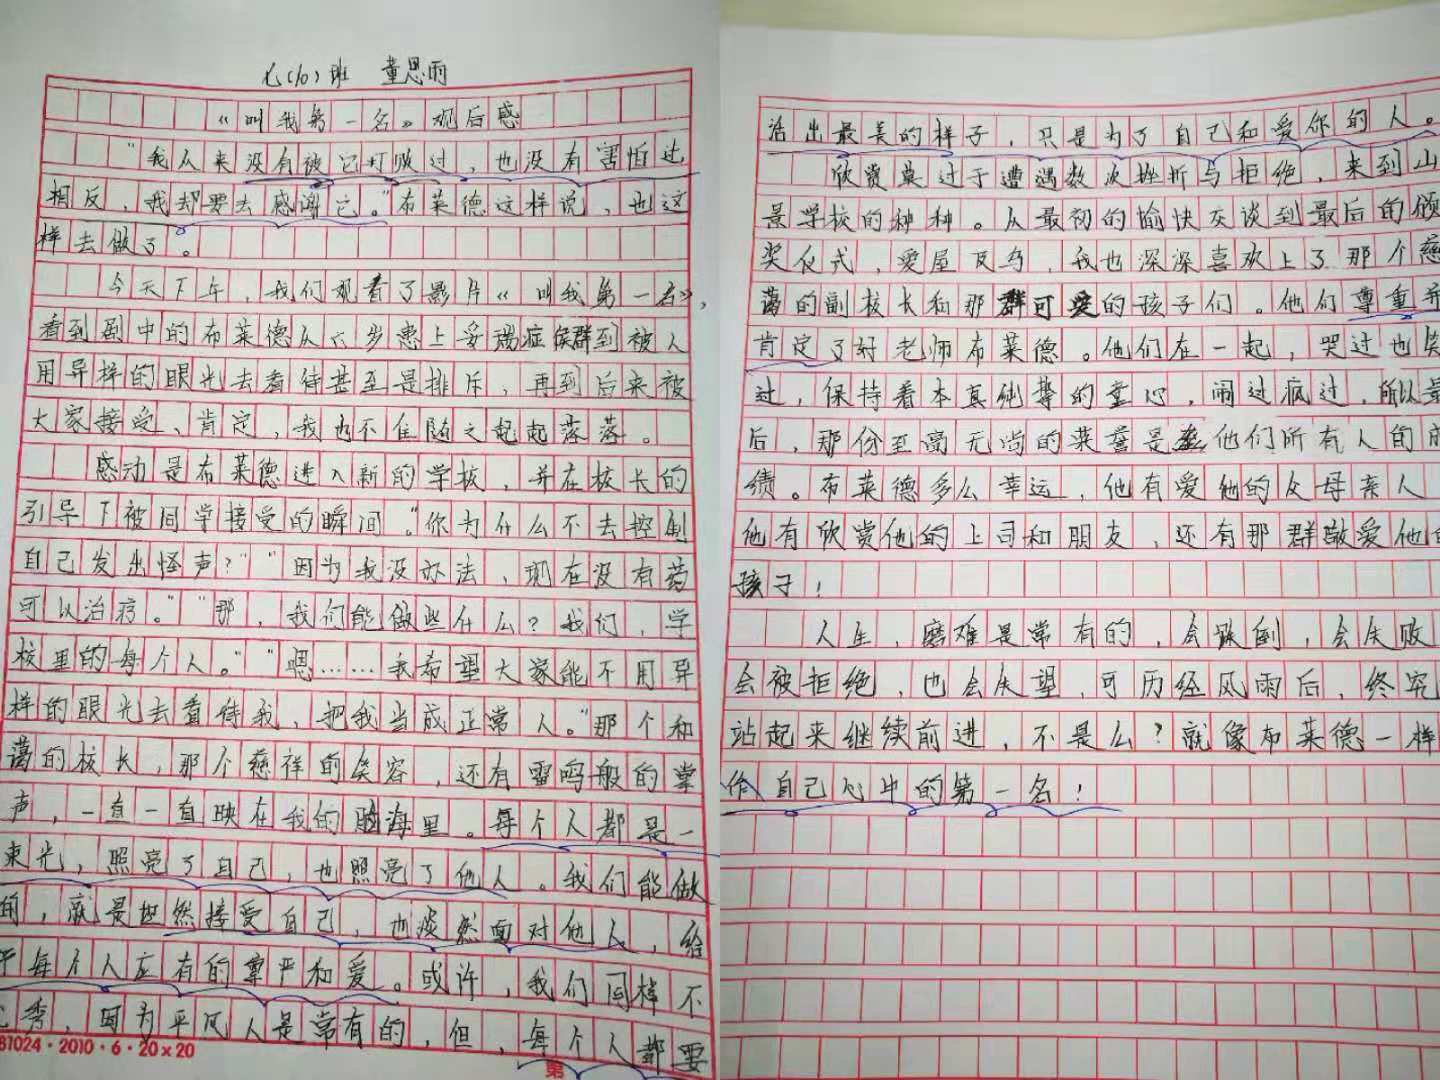 七(10)班 童思雨
《叫我第一名》观后感
“我从来没有被它打败过，也没有害怕过
相反，我却要去感谢它。”布莱德这样说，也这
样去做了。
今天下午，我们观看了影片《叫我第一名》，
看到剧中的布莱德从六岁患上妥瑞症候群到被人
用异样的眼光去看待甚至是排斥，再到后来被
大家接受、肯定，我也不住随之起起落落。
感动是布莱德进入新的学校，并在校长的
引导下被同学接受的瞬间。“你为什么不去控制
自己发出怪声？”“因为我没办法，现在没有药
可以治疗。”“那，我们能做些什么？我们，学
校里的每个人。”“嗯……我希望大家能不用异
样的眼光去看待我，把我当成正常人。”那个和
蔼的校长，那个慈祥的笑容，还有雷鸣般的掌
声，一直一直映在我的脑海里。每个人都是一
束光，照亮了自己，也照亮了他人。我们能做
的，就是坦然接受自己，也淡然面对他人，给
予每个人应有的尊严和爱。或许，我们同样不
秀，因为平凡人是常有的，但，每个人都要
81024·2010·6·20×20
第
活出最美的样子，只是为了自己和爱你的人。
欣赏莫过于遭遇数次挫折与拒绝，来到山
景学校的种种。从最初的愉快交谈到最后的颁
奖仪式，爱屋及乌，我也深深喜欢上了那个慈
蔼的副校长和那群可爱的孩子们。他们尊重并
肯定了好老师布莱德。他们在一起，哭过也笑
过，保持着本真纯挚的童心，闹过疯过，所以最
后，那份至高无尚的荣誉是他们所有人的成
绩。布莱德多么幸运，他有爱他的父母亲人
他有欣赏他的上司和朋友，还有那群敬爱他的
孩子！
人生，磨难是常有的，会跌倒，会失败
会被拒绝，也会失望，可历经风雨后，终究
站起来继续前进，不是么？就像布莱德一样
作自己心中的第一名！